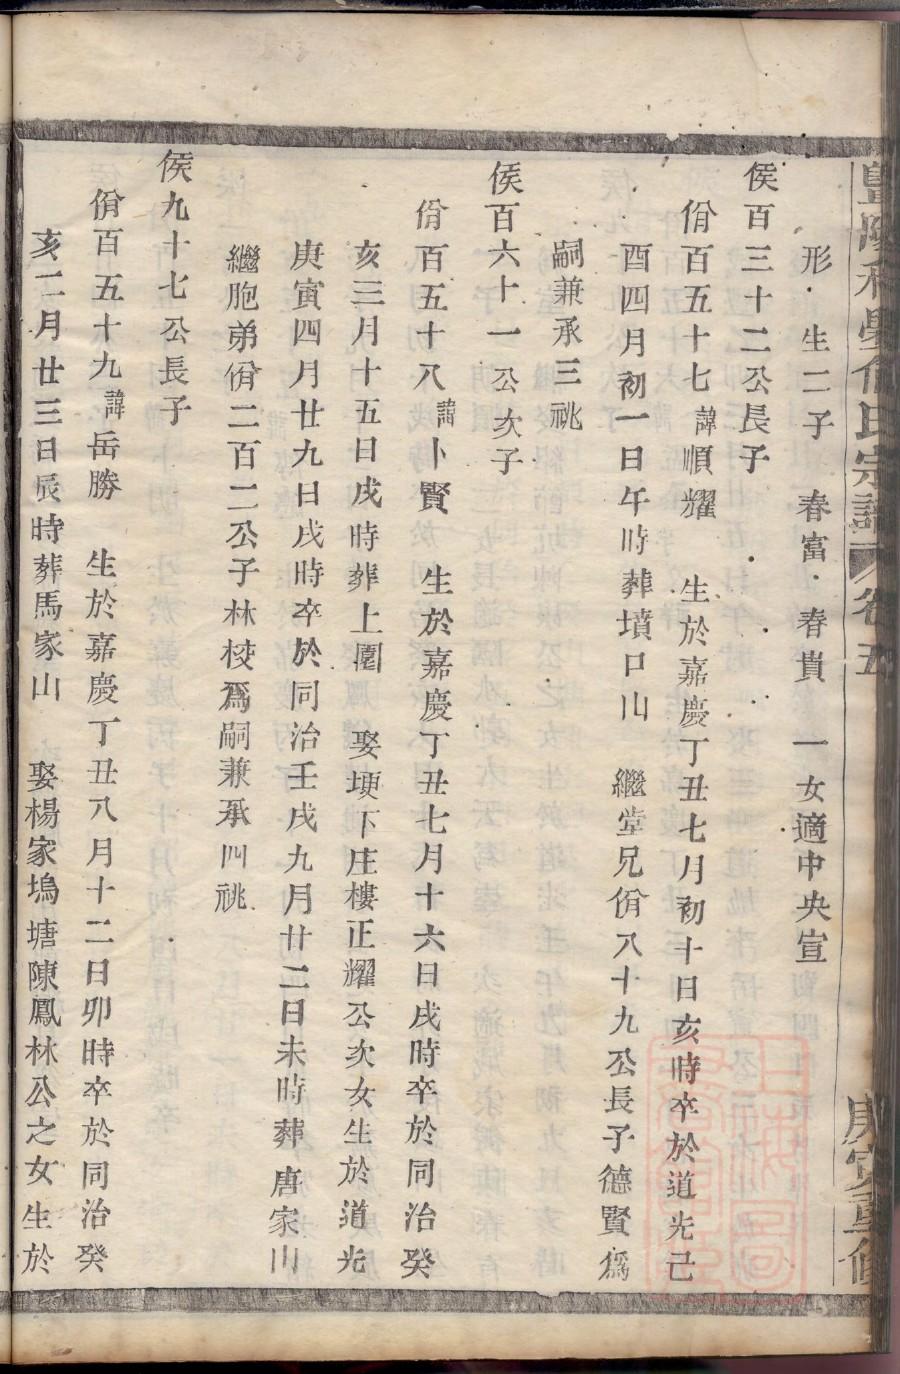 氏宗譜 卷五
庚寅重修
形 生二子 春富 春貴 一女適中央宣
侯百三十二公長子
佾百五十七諱順耀 生於嘉慶丁丑七月初十日亥時卒於道光己
酉四月初一日午時葬墳口山 繼堂兄佾八十九公長子德賢爲
嗣兼承三祧
侯百六十一公次子
佾百五十八諱卜賢 生於嘉慶丁丑七月十六日戌時卒於同治癸
亥三月十五日戌時葬上園 娶埂下庄樓正耀公次女生於道光
庚寅四月廿九日戌時卒於同治壬戌九月廿二日未時葬唐家山
繼胞弟佾二百二公子林校爲嗣兼承四祧
侯九十七公長子
佾百五十九諱岳勝 生於嘉慶丁丑八月十二日卯時卒於同治癸
亥二月廿三日辰時葬馬家山 娶楊家塢塘陳鳳林公之女生於